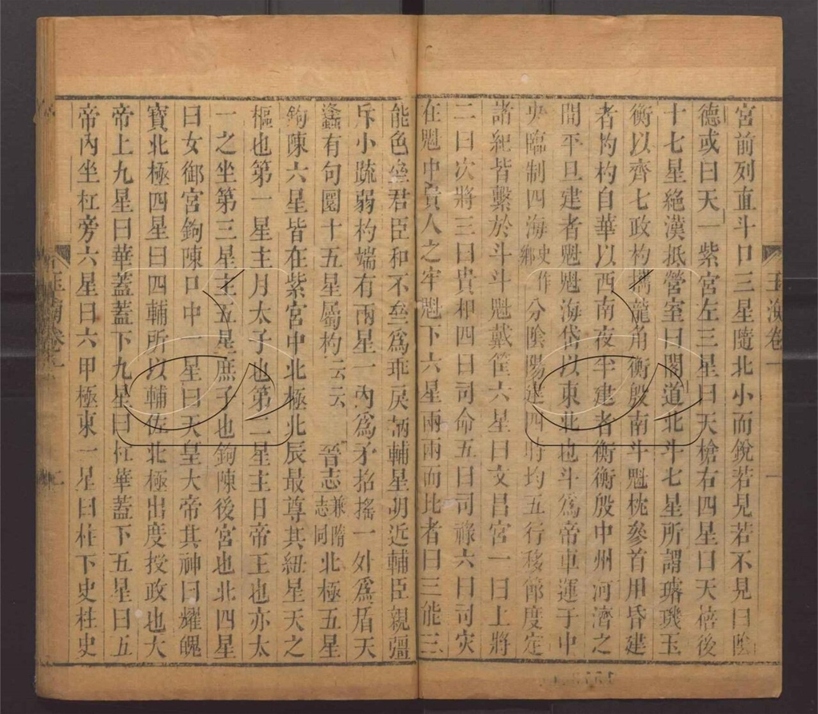 宮前列直斗口三星隨北小而銳若見若不見曰陰
德或曰天一紫宮左三星曰天槍右四星曰天棓後
十七星絶漢抵營室曰閣道北斗七星所謂璿璣玉
衡以齊七政杓攜龍角衡殷南斗魁枕參首用昏建
者杓杓自華以西南夜半建者衡衡殷中州河濟之
間平旦建者魁魁海岱以東北也斗爲帝車運于中
央臨制四海史作鄉分陰陽建四時均五行移節度定
諸紀皆繫於斗斗魁戴筐六星曰文昌宮一曰上將
二曰次將三曰貴相四曰司命五曰司祿六曰司灾
在魁中貴人之牢魁下六星兩兩而比者曰三能三
玉海卷一
能色齊君臣和不齊爲乖戾柄輔星明近輔臣親彊
斥小疏弱杓端有兩星一內爲矛招搖一外爲盾天
蠭有句圜十五星屬杓云云 晉志兼隋志同北極五星
鉤陳六星皆在紫宮中北極北辰最尊其紐星天之
樞也第一星主月太子也第二星主日帝王也亦太
一之坐第三星主五星庶子也鉤陳後宮也北四星
曰女御宮鉤陳口中一星曰天皇大帝其神曰耀魄
寶北極四星曰四輔所以輔佐北極出度授政也大
帝上九星曰華蓋蓋下九星曰杠華蓋下五星曰五
帝內坐杠旁六星曰六甲極東一星曰柱下史柱史
玉海卷一
二